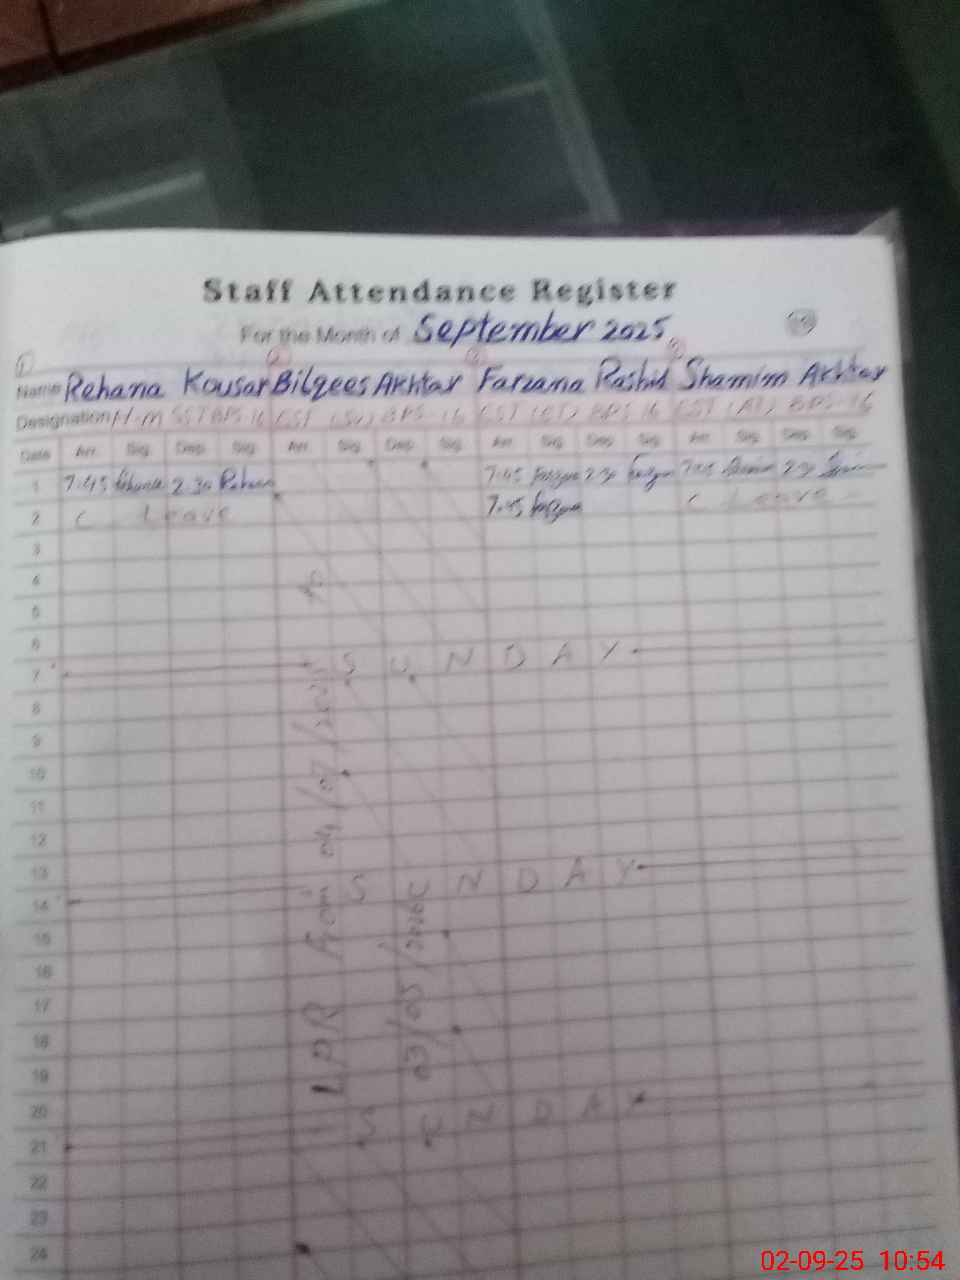 Staff Attendance Register
For the Month of September 2025
① ② ③
Name Rehana Kousar Bilqees Akhtar Farzana Rashid Shamim Akhtar
Designation H-M SST BPS-16 EST (Sr) BPS-16 EST BPS 16 EST (AT) BPS-16
Date Arr. Sig. Dep. Sig. Arr. Sig. Dep. Sig. Arr. Sig. Dep. Sig. Arr. Sig. Dep. Sig.
1 7.45 Rehana 2.30 Rehana 7.45 Farzana 2.30 Farzana 7.45 Shamim 2.30
2 C Leave 7.45 Farzana C Leave
3
4
5
6
7 SUNDAY
8
9
10
11
12
13
14 SUNDAY
15
16
17
18
19
20
21 SUNDAY
22
23
24
LPR from 04/07/2025 to
03/05/2026
02-09-25 10:54